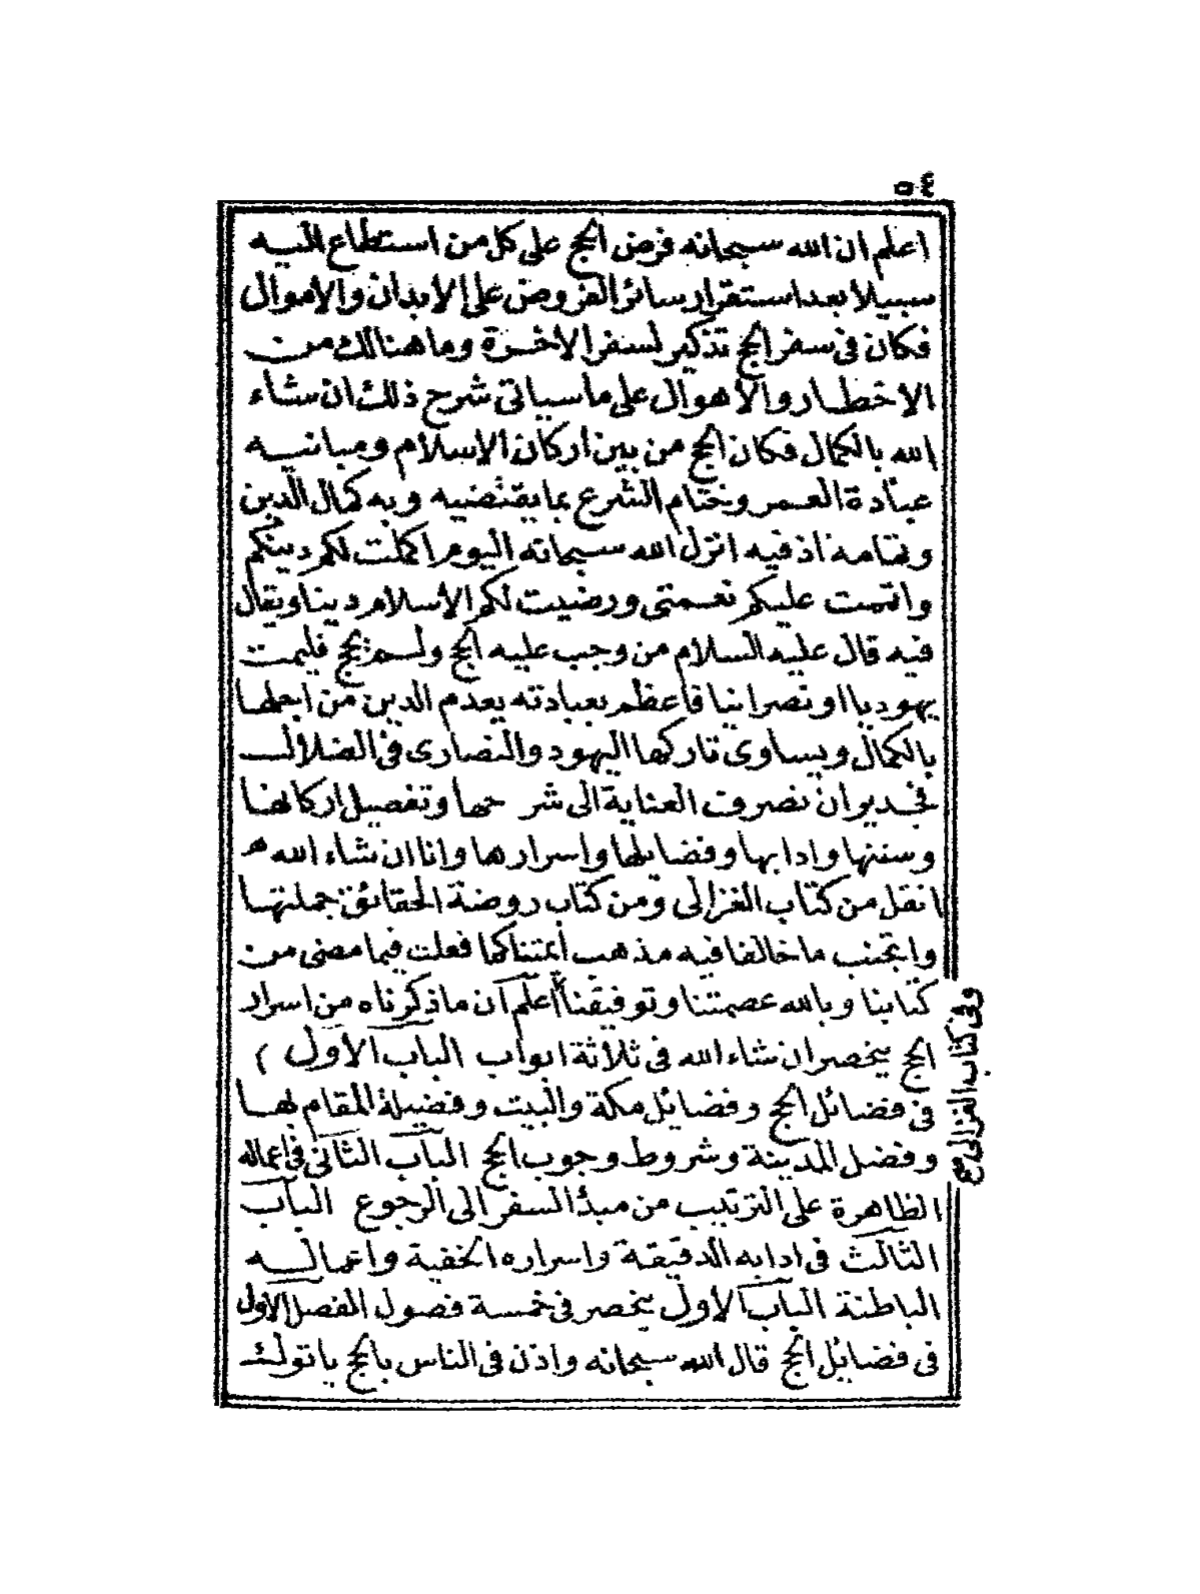 ٥٤
اعلم ان الله سبحانه فرض الحج على كل من استطاع اليه
سبيلا بعد استقرار سائر الفروض على الابدان والاموال
فكان فى سفر الحج تذكير لسفر الاخرة وما هنالك من
الاخطار والاهوال على ما سياتى شرح ذلك ان شاء
الله بالكمال فكان الحج من بين اركان الاسلام ومبانيه
عبادة العمر وختام الشرع بما يقتضيه وبه كمال الدين
وتمامه اذ فيه انزل الله سبحانه اليوم اكملت لكم دينكم
واتممت عليكم نعمتى ورضيت لكم الأسلام دينا ويقال
فيه قال عليه السلام من وجب عليه الحج ولم يحج فليمت
يهوديا او نصرانيا فاعظم بعبادته يعدم الدين من اجلها
بالكمال ويساوى تاركها اليهود والنصارى فى الضلال
فجدير ان نصرف العناية الى شرحها وتفصيل اركانها
وسننها وادابها وفضايلها واسرارها وانا ان شاء الله
انقل من كتاب الغزالى ومن كتاب روضة الحقائق جملتها
واتجنب ما خالفا فيه مذهب أئمتنا كما فعلت فيما مضى من
كتابنا وبالله عصمتنا وتوفيقنا اعلم ان ما ذكرناه من اسرار
الحج ينحصر ان شاء الله فى ثلاثة ابواب الباب الاول
فى فضائل الحج وفضايل مكة والبيت وفضيلة المقام بها
وفضل المدينة وشروط وجوب الحج الباب الثانى فى اعماله
الظاهرة على الترتيب من مبدأ السفر الى الرجوع الباب
الثالث فى ادابه الدقيقة واسراره الخفية واعماله
الباطنة الباب الاول ينحصر فى خمسة فصول الفصل الاول
فى فضايل الحج قال الله سبحانه واذن فى الناس بالحج ياتوك
وفى كتاب الغزالى